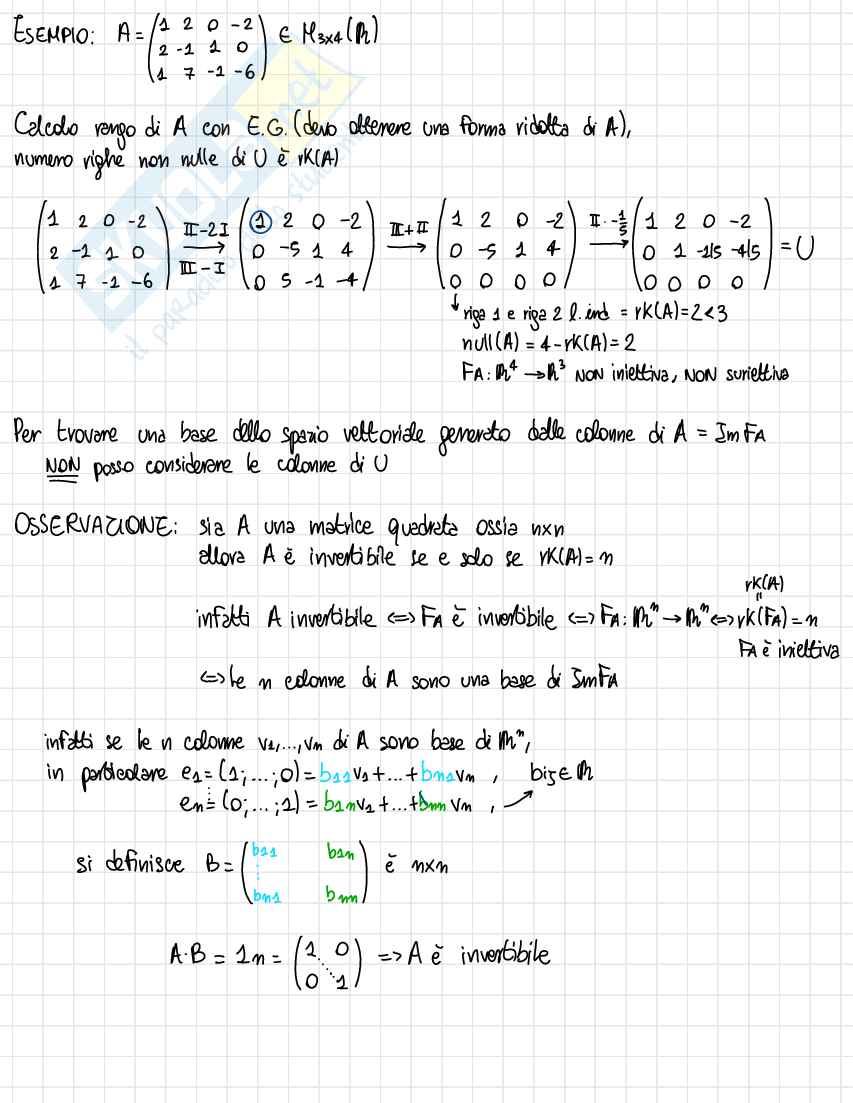 ESEMPIO: A = (1 2 0 -2 / 2 -1 1 0 / 1 7 -1 -6) ∈ M3x4(ℝ)
Calcolo rango di A con E.G. (devo ottenere una forma ridotta di A),
numero righe non nulle di U è rK(A)
(1 2 0 -2 / 2 -1 1 0 / 1 7 -1 -6) II-2I → III-I (1 2 0 -2 / 0 -5 1 4 / 0 5 -1 -4) III+II → (1 2 0 -2 / 0 -5 1 4 / 0 0 0 0) II·-1/5 → (1 2 0 -2 / 0 1 -1/5 -4/5 / 0 0 0 0) = U
↓ riga 1 e riga 2 l.ind = rK(A)=2<3
null(A) = 4-rK(A)=2
FA: ℝ⁴ → ℝ³ NON iniettiva, NON suriettiva
Per trovare una base dello spazio vettoriale generato dalle colonne di A = ImFA
NON posso considerare le colonne di U
OSSERVAZIONE: sia A una matrice quadrata ossia nxn
allora A è invertibile se e solo se rK(A)=n
rK(A)
"
infatti A invertibile <=> FA è invertibile <=> FA: ℝⁿ → ℝⁿ <=> rK(FA)=n
FA è iniettiva
<=> le n colonne di A sono una base di ImFA
infatti se le n colonne v1,...,vn di A sono base di ℝⁿ,
in particolare e1=(1;...;0)=b11v1+...+bn1vn , bij∈ℝ
⋮
en=(0;...;1)=b1nv1+...+bnnvn ,
si definisce B=(b11 b1n / ⋮ / bn1 bnn) è nxn
A·B = 1n = (1 0 / ⋱ / 0 1) => A è invertibile
SKUOLA.net
il paradiso degli studenti